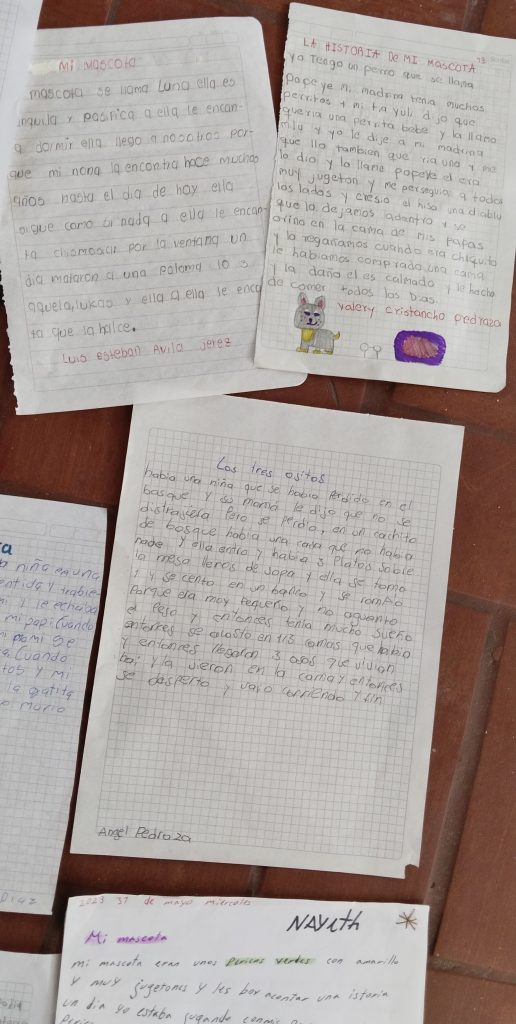 Mi Mascota
mascota se llama Luna ella es
nquila y pasifica a ella le encan-
a dormir ella llego a nosotros por-
que mi nona la encontra hace muchos
años hasta el dia de hoy ella
sigue como si nada a ella le encan-
ta chismosiar por la ventana un
dia mataron a una paloma lo 3
aquela, lukas y ella a ella le enca
ta que la halce.
Luis esteban Avila Jerez
LA HISTORIA De MI MASCOTA 13
yo Tengo un perro que se llama
papeye mi madrina tenia muchos
perritos y mi tia yuli dijo que
queria una perrita bebe y la llamo
mila y yo le dije a mi madrina
que llo tambien que ria uno y me
lo dio y lo llame papeye el era
muy jugeton y me perseguia a todos
los lados y cresio el hiso una diablu
que lo dejamos adentro y se
orino en la cama de mis papas
y lo regañamos cuando era chiquito
le habiamos comprado una cama
y la daño el es calmado y le hecho
de comer todos los dias
valery cristancho pedraza
Los tres ositos
habia una niña que se habia perdido en el
bosque y su mamá le dijo que no se
distrajera pero se perdio, en un cachito
de bosque habia una casa que no habia
nade y ella entro y habia 3 platos sobre
la mesa llenos de sopa y ella se tomo
1 y se cento en un banco y se rompio
porque era muy pequeño y no aguanto
el peso y entonces tenia mucho sueño
entonces se acosto en 1/3 camas que habia
y entonces llegaron 3 osos que vivian
hai y la vieron en la cama y entonces
se desperto y salio corriendo y fin
Angel Pedroza
a
niña en una
entida y
mi y le echaba
mi papi cuando
mi se
a. Cuando
tos y mi
la gatita
murio
Diaz
2023 31 de mayo miercoles
NAYeth
Mi mascota
mi mascota eran unos pericos verdes con amarillo
y muy jugetones y les boy acontar una istoria
un dia yo estaba jugando conmis